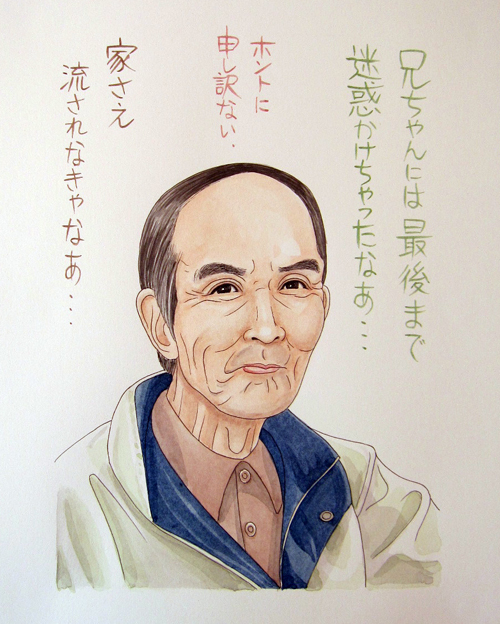 兄ちゃんには 最後まで
迷惑かけちゃったなあ...
ホントに
申し訳ない.
家さえ
流されなきゃなあ...